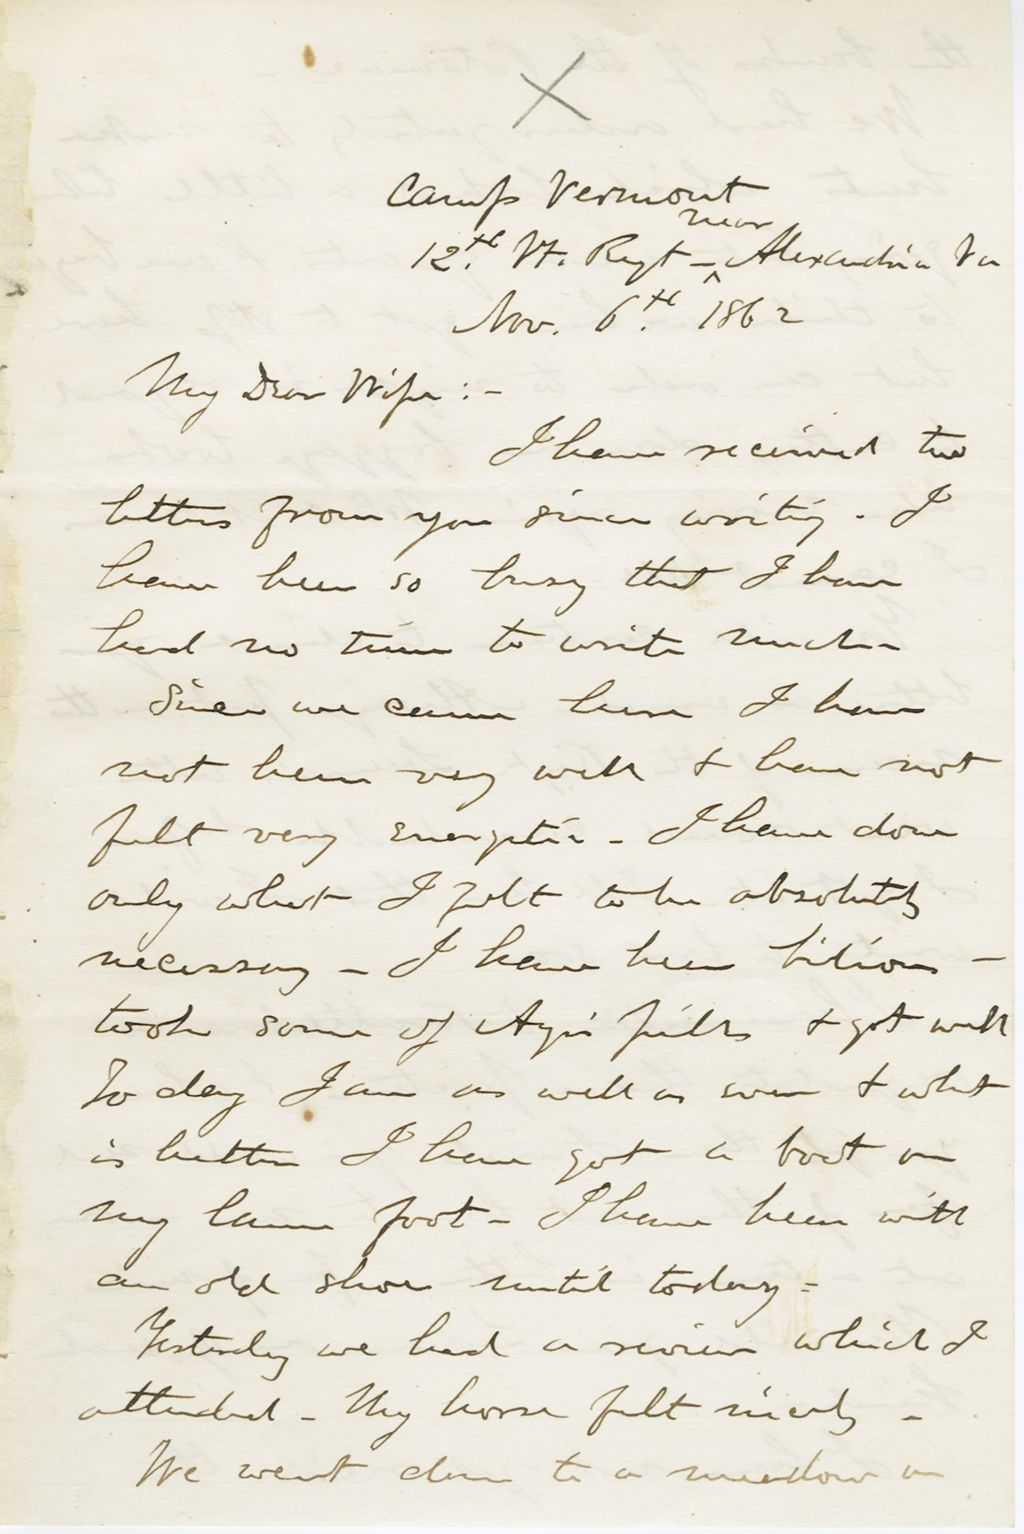 Camp Vermont
12th. Vt. Regt - near Alexandria Va
Nov. 6th. 1862
My Dear Wife :-
I have received two
letters from you since writing. I
have been so busy that I have
had no time to write much-
Since we came here I have
not been very well & have not
felt very energetic - I have done
only what I felt to be absolutely
necessary - I have been bilious -
took some of Ayer's pills & got well
To day I am as well as ever & what
is better I have got a boot on
my lame foot - I have been with
an old shoe until today -
Yesterday we had a review which I
attended - My horse felt nicely -
We went down to a meadow on